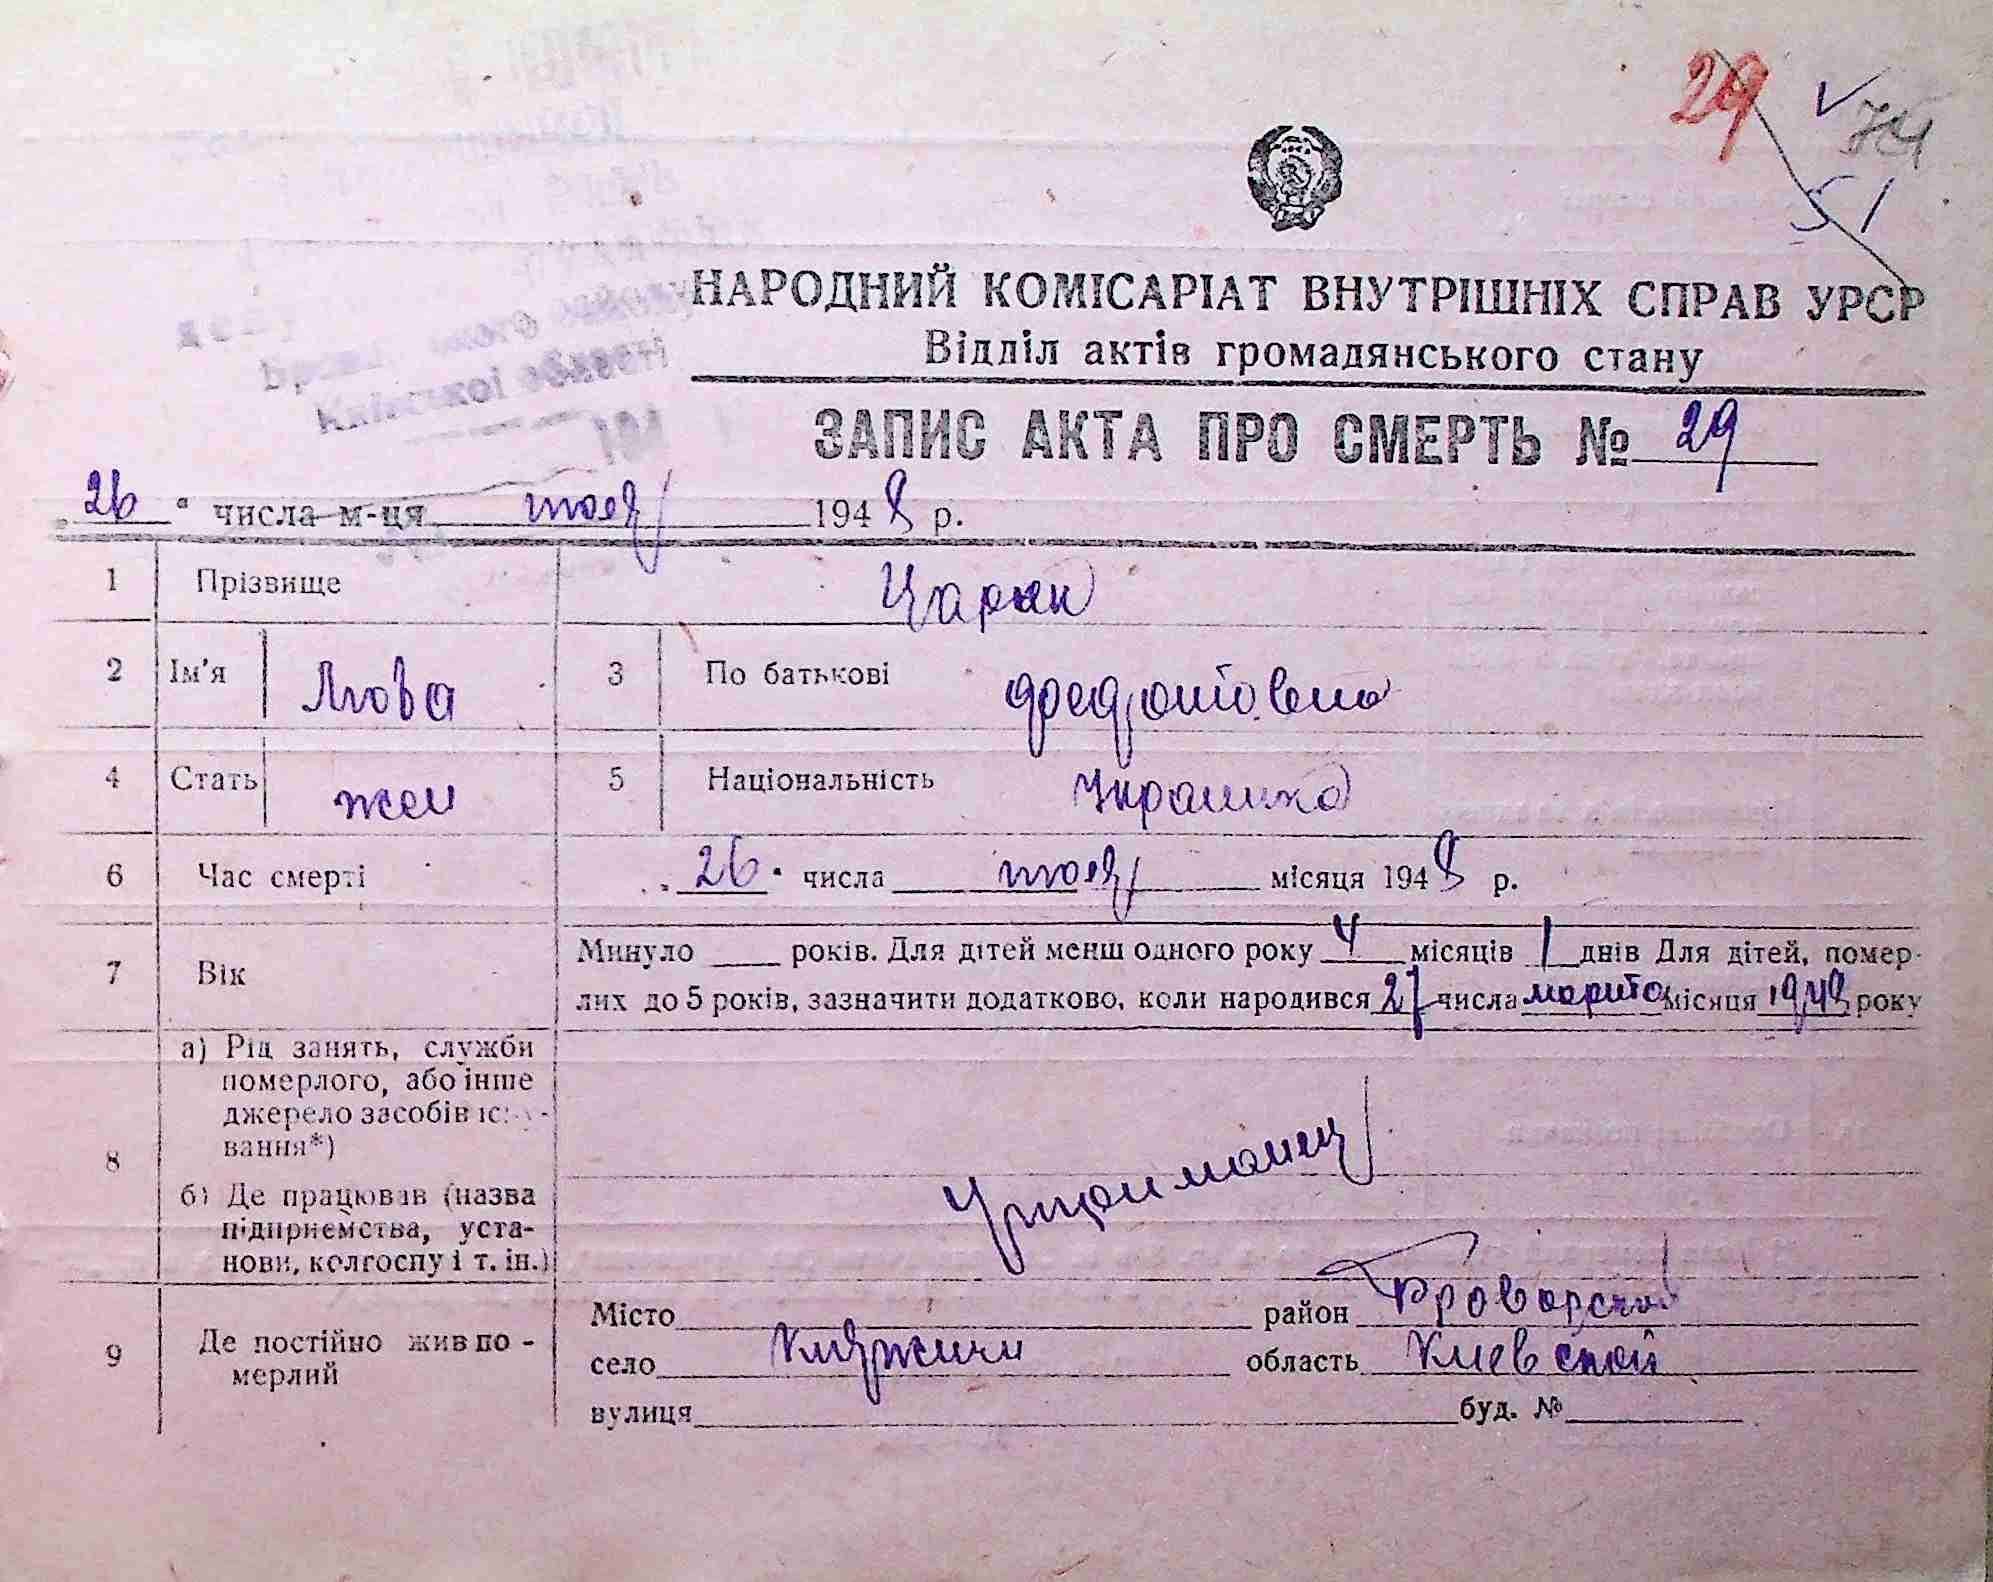 29 V 74
51
НАРОДНИЙ КОМІСАРІАТ ВНУТРІШНІХ СПРАВ УРСР
Відділ актів громадянського стану
ЗАПИС АКТА ПРО СМЕРТЬ № 29
26 числа м-ця мая 1948 р.
1 Прізвище Царик
2 Ім'я Люба 3 По батькові
4 Стать жен 5 Національність Украинка
6 Час смерті 26 числа мая місяця 1948 р.
7 Вік Минуло ____ років. Для дітей менш одного року 4 місяців 1 днів Для дітей, помер-
лих до 5 років, зазначити додатково, коли народився 27 числа марта місяця 1948 року
8 а) Рід занять, служби
померлого, або інше
джерело засобів існу-
вання*)
Украинец
б) Де працював (назва
підприємства, уста-
нови, колгоспу і т. ін.)
9 Де постійно жив по-
мерлий
Місто район Броварской
село Княжичи область Киевской
вулиця буд. №